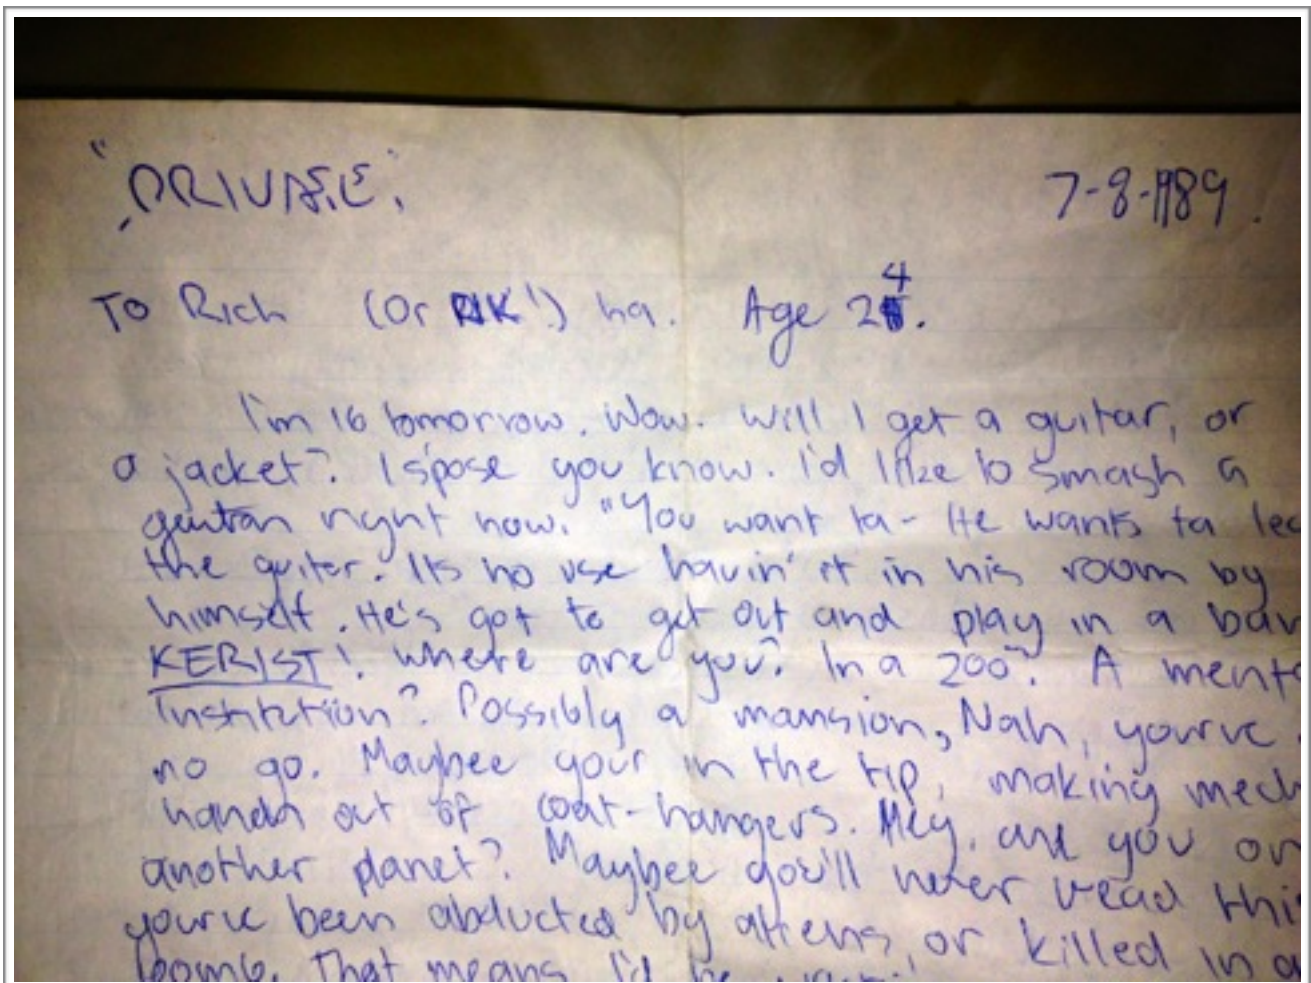 "PRIVATE".
7-8-1989.
To Rich (Or RIK!) ha. Age 24.
I'm 16 tomorrow. Wow. Will I get a guitar, or
a jacket?. I spose you know. I'd like to smash a
right now. "You want ta- He wants ta lea
the guiter. Its no use havin' it in his room by
himself. He's got to get out and play in a ban
KERIST! Where are you? In a zoo? A menta
Institution? Possibly a mansion, Nah, yourve
no go. Maybee your in the tip, making mech
hands out of coat-hangers. Hey, are you on
another planet? Maybee you'll never read this
yourve been abducted by aliens, or killed in a
bomb. That means I'd be